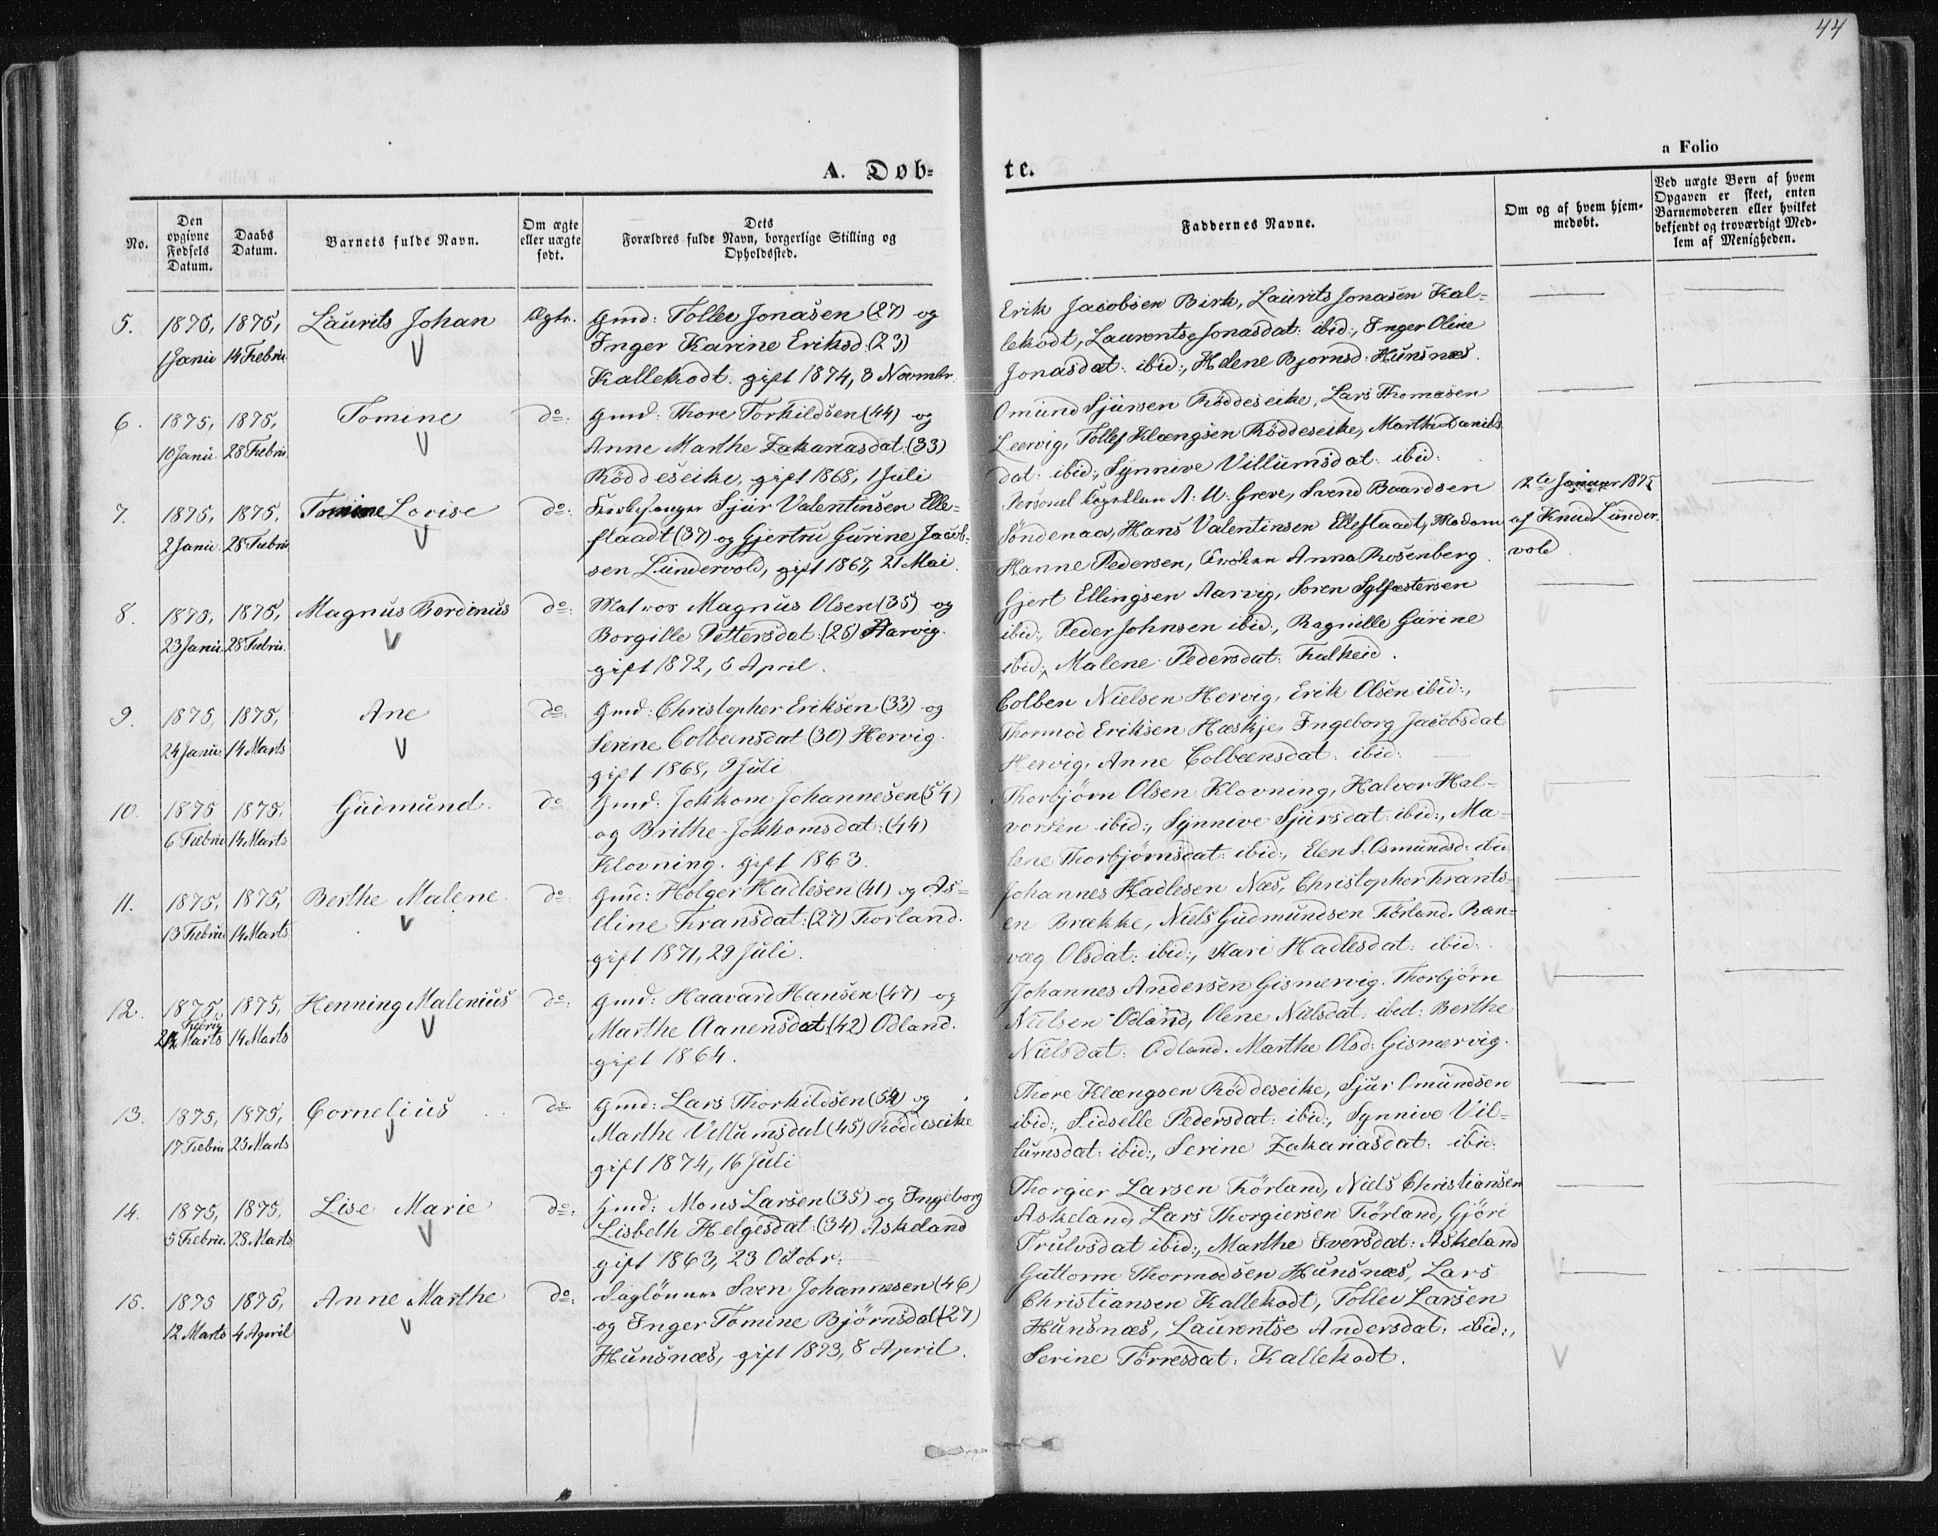 44
a Folio
A. Døb-
te.
No.
Den opgivne Fødsels Datum.
Daabs Datum.
Barnets fulde Navn.
Om ægte eller uægte født.
Dets Forældres fulde Navn, borgerlige Stilling og Opholdssted.
Faddernes Navne.
Om og af hvem hjemmedøbt.
Ved uægte Børn af hvem Opgaven er skeet, enten Barnemoderen eller hvilket bekjendt og troværdigt Medlem af Menigheden.
5. 1875, 1875, Laurits Johan Ægte. Gmd: Tollev Jonasen (27) og
1 Janu 14 Febru. Inger Karine Eriksd: (23)
Kallekodt. gift 1874, 8 Novembr.
Erik Jacobsen Birk, Laurits Jonasen Kal-
lekodt, Laurentse Jonasdat: ibid:, Inger Oline
Jonasdat: ibid:, Helene Bjornsd: Hunsnæs.
6. 1875, 1875, Tomine do: Gmd: Thore Torkildsen (44) og
10 Janu. 28 Febru. Anne Marthe Zakariasdat: (33)
Röddeseike, gift 1868, 1 Juli
Omund Sjursen Röddeseike, Lars Thomasen
Leervig, Tollef Klængsen Röddeseike, Marthe Daniels
dat: ibid:, Synnive Villumsdat: ibid:
7. 1875, 1875, Tomine Lovise do: Kirkesanger Sjur Valentinsen Elle-
2 Janu. 28 Febru. flaadt (37) og Gjertru Gurine Jacob-
sen Lundervold, gift 1867, 21 Mai.
Personel Capellan A. W. Greve, Svend Baardsen
Söndenaa, Hans Valentinsen Elleflaadt, Madam
Hanne Pedersen, Frøken Anna Rosenberg.
12te Januar 1875
af Knud Lunder-
vold
8. 1875, 1875, Magnus Bordinus do: Matros Magnus Olsen (35) og
23 Janu. 28 Febru. Borgille Pettersdat: (26) Aarvig.
gift 1872, 5 April.
Gjert Ellingsen Aarvig, Soren Sylfestersen
ibid:, Peder Johnsen ibid:, Ragnille Gurine
ibid:, Malene Pedersdat: Falkeid.
9. 1875, 1875, Ane do: Gmd: Christopher Eriksen (33) og
24 Janu. 14 Marts Serine Colbensdat (30) Hervig.
gift 1868, 9 Juli
Colben Nielsen Hervig, Erik Olsen ibid:,
Thormod Eriksen Hæskje, Ingeborg Jacobsdat
Hervig, Anne Colbensdat: ibid:
10. 1875 1875, Gudmund do Gmd: Jokkom Johannesen (54)
6 Febru 14 Marts og Brithe Jokkomsdat: (44)
Klovning. gift 1863.
Thorbjørn Olsen Klovning, Halvor Hal-
vorsen ibid:, Synnive Sjursdat: ibid:, Ma-
lene Thorbjørnsdat: ibid:, Elen S: Osmundsd: ibid:
11. 1875, 1875, Berthe Malene. do: Gmd: Holger Hadlesen (41) og As-
13 Febru 14 Marts line Fransdat: (27) Forland.
gift 1871, 29 Juli.
Johannes Hadlesen Næs, Christopher Frants-
en Brække, Niels Gudmundsen Förland, Ran-
væg Olsdat: ibid:, Kari Hadlesdat: ibid:.
12. 1875, 1875, Henning Malenius do: Gmd: Haavard Hansen (47) og
Febru
Marts 14 Marts Marthe Aanensdat (42) Odland.
gift 1864.
Johannes Andersen Gismervig. Thorbjörn
Nielsen Odland, Olene Nielsdat: ibid: Berthe
Nielsdat: Odland. Marthe Olsd: Gismervig.
13. 1875, 1875, Cornelius do Gmd: Lars Thorkildsen (54) og
17 Febru 25 Marts Marthe Villumsdat (45) Röddeseike
gift 1874, 16 Juli
Thore Klængsen Röddeseike, Sjur Omundsen
ibid:, Sidselle Pedersdat: ibid:, Synnive Vil-
lumsdat: ibid:, Serine Zakariasdat: ibid:
14. 1875, 1875, Lise Marie do: Gmd: Mons Larsen (35) og Ingeborg
5 Febru. 28 Marts Lisbeth Helgesdat: (34) Askeland
gift 1863, 23 Octobr:
Thorgier Larsen Förland, Niels Christiansen
Askeland, Lars Thorgiersen Förland, Gjöre
Trulvsdat ibid:, Marthe Iversdat: Askeland
15. 1875 1875, Anne Marthe do: Daglönner Sven Johannesen (46)
12 Marts 4 April og Inger Tomine Bjørnsdat (27)
Hunsnæs, gift 1873, 8 April.
Guttorm Thormodsen Hunsnæs, Lars
Christiansen Kallekodt, Tollev Larsen
Hunsnæs, Laurentse Andersdat: ibid:,
Serine Törresdat: Kallekodt.